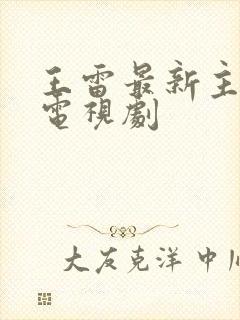 王雷最新主
電視劇
大友克洋 中川